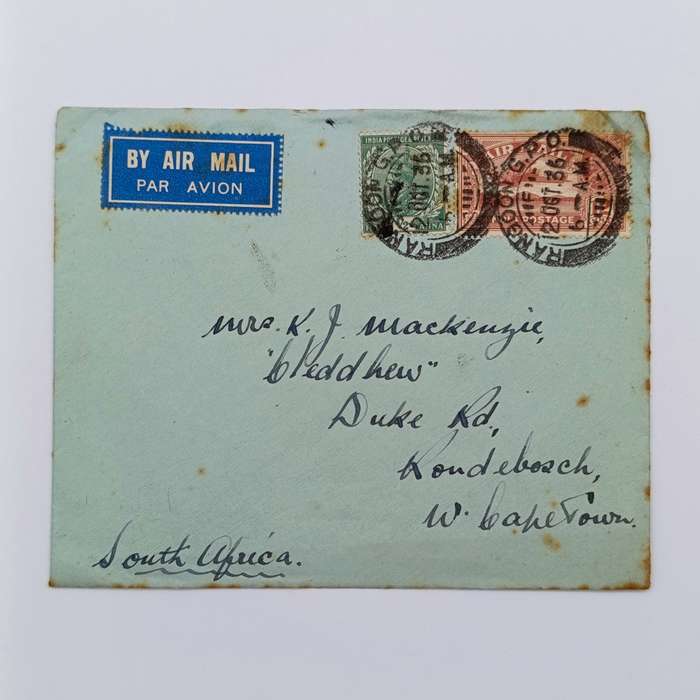 BY AIR MAIL
PAR AVION
INDIA POSTAGE
AIR MAIL
POSTAGE
RANGOON G.P.O.
12 OCT 36
6 - A.M.
RANGOON G.P.O.
12 OCT 36
6 - A.M.
Mrs. K. J. Mackenzie,
"Cleddhew"
Duke Rd,
Rondebosch,
W. Cape Town.
South Africa.